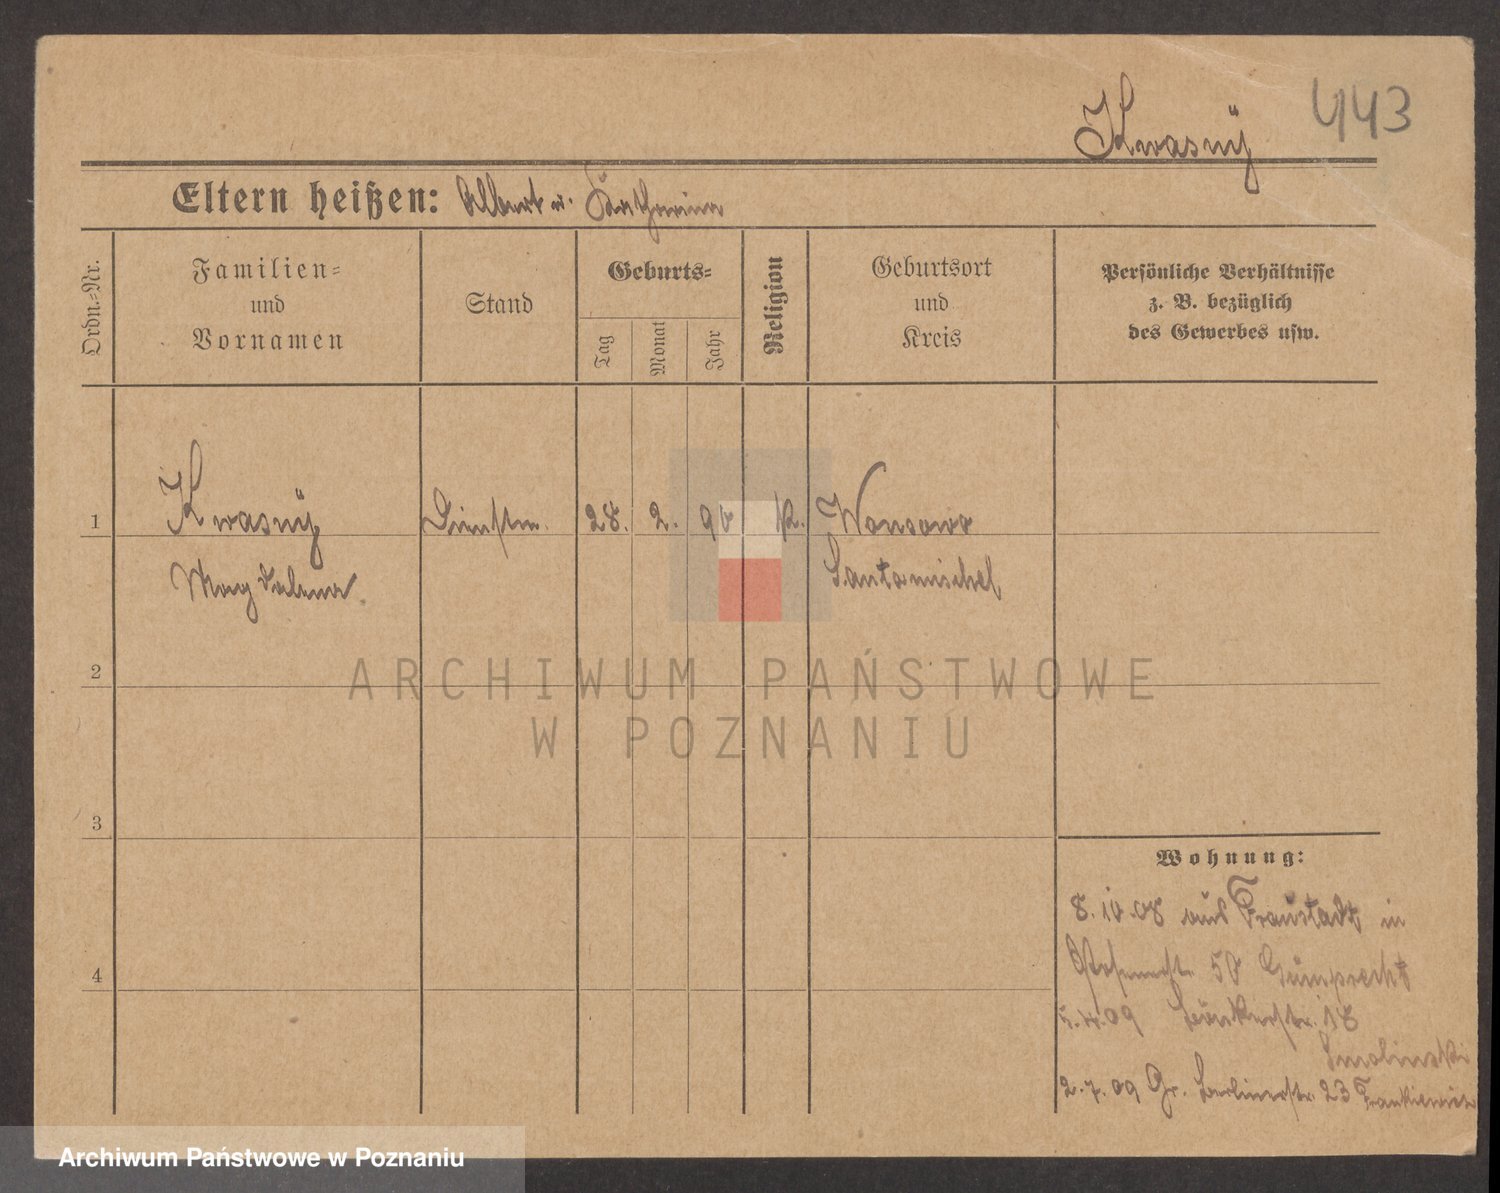 Kwasny
443
Eltern heißen: Albert u. Katharina
Ordn.-Nr.
Familien-
und
Vornamen
Stand
Geburts-
Tag
Monat
Jahr
Religion
Geburtsort
und
Kreis
Persönliche Verhältnisse
z. B. bezüglich
des Gewerbes usw.
1
Kwasny
Dienstm. 28. 2. 96 k. Wonsowo
Magdalena Santomischel
2
ARCHIWUM PAŃSTWOWE
W POZNANIU
3
Wohnung:
8.10.08 aus Fraustadt in
50 Gumprecht
4
09 18
Smolinski
2.7.09 Gr. Berlinerstr. 23 Frankiewicz
Archiwum Państwowe w Poznaniu